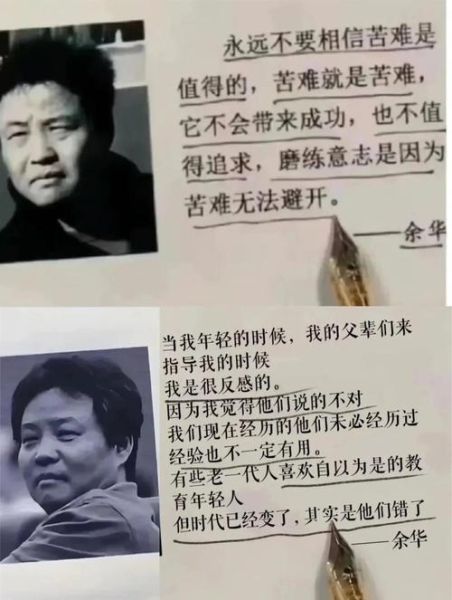 永远不要相信苦难是
值得的，苦难就是苦难，
它不会带来成功，也不值
得追求，磨练意志是因为
苦难无法避开。
——余华
当我年轻的时候，我的父辈们来
指导我的时候
我是很反感的。
因为我觉得他们说的不对
我们现在经历的他们未必经历过
经验也不一定有用。
有些老一代人喜欢自以为是的教
育年轻人
但时代已经变了，其实是他们错了
——余华